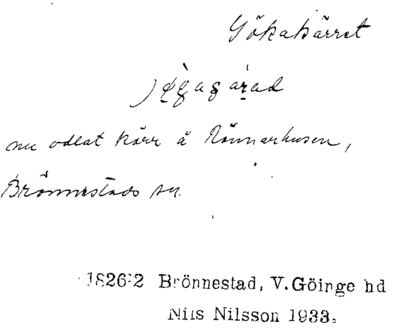 Gökakärret
nu odlat kärr å Rönnarhusen,
Brönnestads sn.
1826:2 Brönnestad, V.Göinge hd
Nils Nilsson 1933.